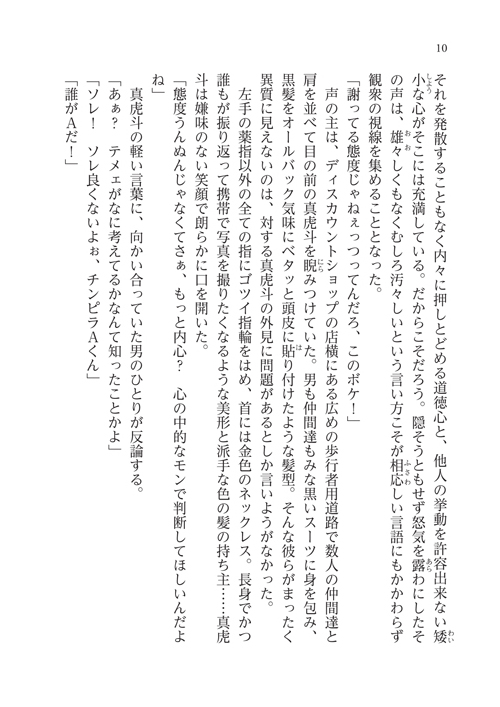 10
それを発散することもなく内々に押しとどめる道徳心と、他人の挙動を許容出来ない矮
小な心がそこには充満している。だからこそだろう。隠そうともせず怒気を露わにしたそ
の声は、雄々しくもなくむしろ汚々しいという言い方こそが相応しい言語にもかかわらず
観衆の視線を集めることとなった。
「謝ってる態度じゃねぇっつってんだろ、このボケ！」
声の主は、ディスカウントショップの店横にある広めの歩行者用道路で数人の仲間達と
肩を並べて目の前の真虎斗を睨みつけていた。男も仲間達もみな黒いスーツに身を包み、
黒髪をオールバック気味にベタッと頭皮に貼り付けたような髪型。そんな彼らがまったく
異質に見えないのは、対する真虎斗の外見に問題があるとしか言いようがなかった。
左手の薬指以外の全ての指にゴツイ指輪をはめ、首には金色のネックレス。長身でかつ
誰もが振り返って携帯で写真を撮りたくなるような美形と派手な色の髪の持ち主……真虎
斗は嫌味のない笑顔で朗らかに口を開いた。
「態度うんぬんじゃなくてさぁ、もっと内心？　心の中的なモンで判断してほしいんだよ
ね」
真虎斗の軽い言葉に、向かい合っていた男のひとりが反論する。
「あぁ？　テメェがなに考えてるかなんて知ったことかよ」
「ソレ！　ソレ良くないよぉ、チンピラAくん」
「誰がAだ！」